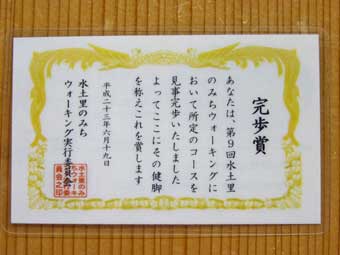 完歩賞
あなたは、第9回水土里
のみちウォーキングに
おいて所定のコースを
見事完歩いたしました
よってここにその健脚
を称えこれを賞します
平成二十三年六月十九日
水土里のみち
ウォーキング実行委員会
水土里のみ
ちウォーキ
ング実行委
員会之印